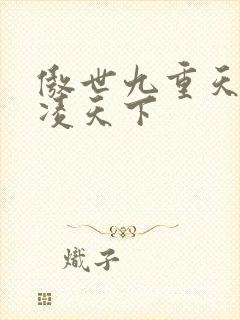 傲世九重天
凌天下
熾子